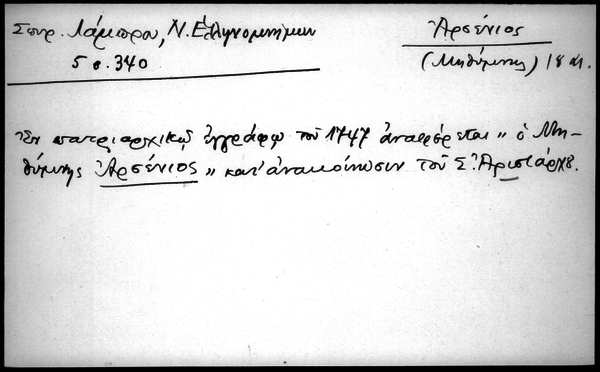 Σπυρ. Λάμπρου, Ν. Ἑλληνομνήμων
5 σ. 340
Ἀρσένιος
(Μηθύμνης) 18 αἰ.
Ἐν πατριαρχικῷ ἐγγράφῳ τοῦ 1747 ἀναφέρεται „ ὁ Μη-
θύμνης Ἀρσένιος „ κατ' ἀνακοίνωσιν τοῦ Σ. Ἀριστάρχου.